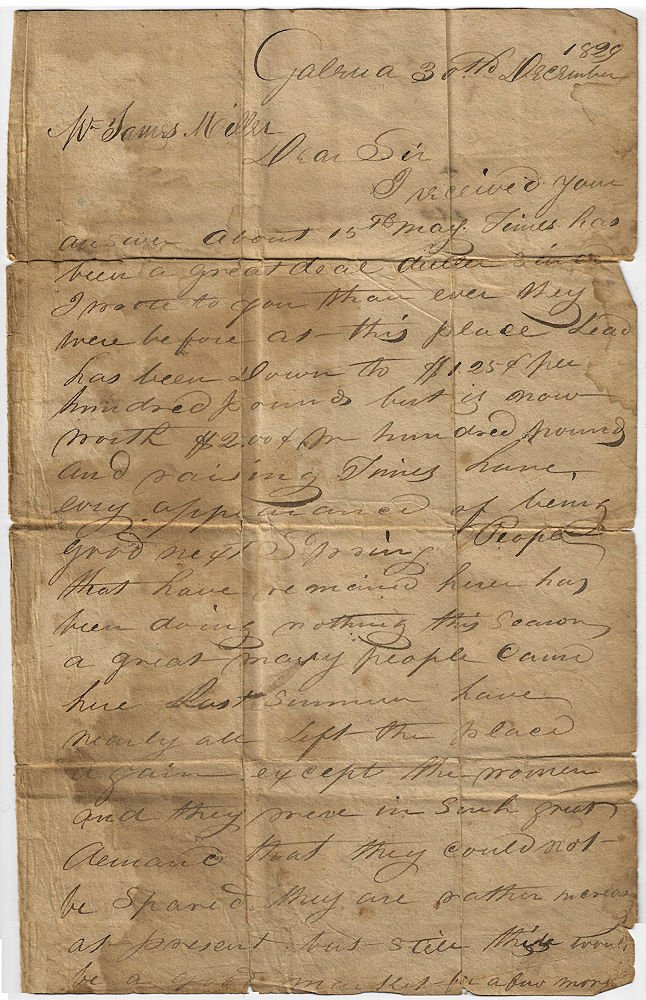 Galena 30th December 1829
Mr James Miller
Dear Sir
I received your
answer about 15th May. Times has
been a great deal duller Since
I wrote to you than ever they
were before at this place Lead
has been Down to $1.25 ¢ per
hundred pounds but is now
worth $2.00 ¢ pr hundred pounds
and raising Times have
evry appearance of being
good next Spring People
that have remaind here has
been doing nothing this Season
a great many people came
here Last Summer have
nearly all Left the place
again except the women
and they were in Such great
demand that they could not
be Spared. they are rather increasing
at present but still this would
be a good market for a few more